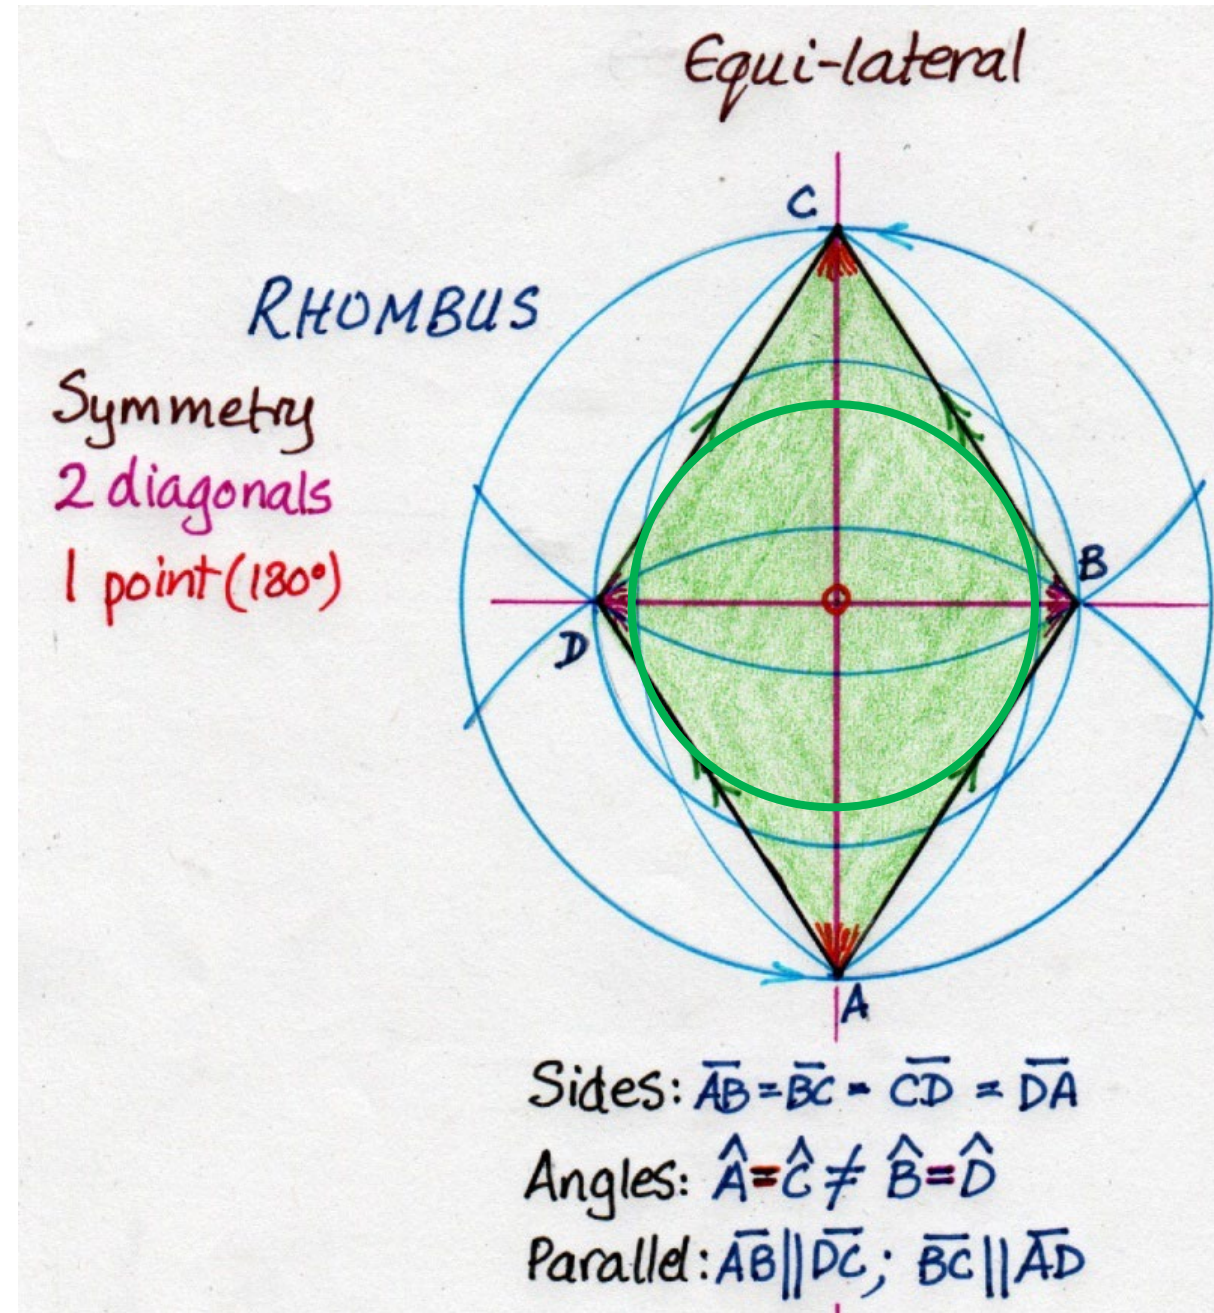 Equi-lateral
C
RHOMBUS
Symmetry
2 diagonals
1 point (180°)
B
D
A
Sides: A̅B̅ = B̅C̅ - C̅D̅ = D̅A̅
Angles: Â = Ĉ ≠ B̂ = D̂
Parallel: A̅B̅ || D̅C̅; B̅C̅ || A̅D̅